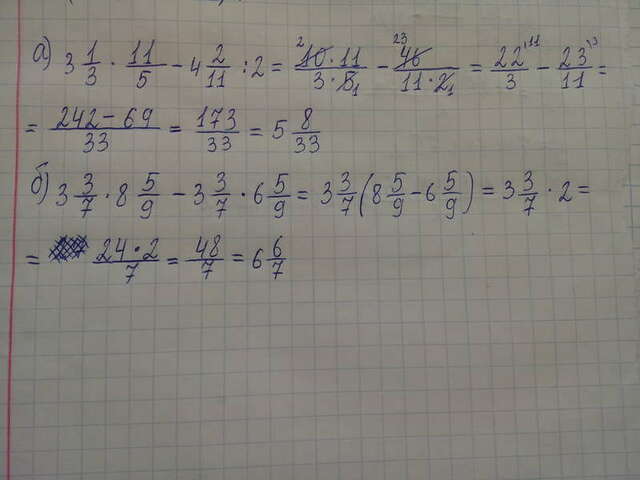 а) 3 1/3 · 11/5 - 4 2/11 : 2 = 10·11/3·5 - 46/11·2 = 22/3 - 23/11 =
= 242-69/33 = 173/33 = 5 8/33
б) 3 3/7 · 8 5/9 - 3 3/7 · 6 5/9 = 3 3/7 (8 5/9 - 6 5/9) = 3 3/7 · 2 =
= 24·2/7 = 48/7 = 6 6/7